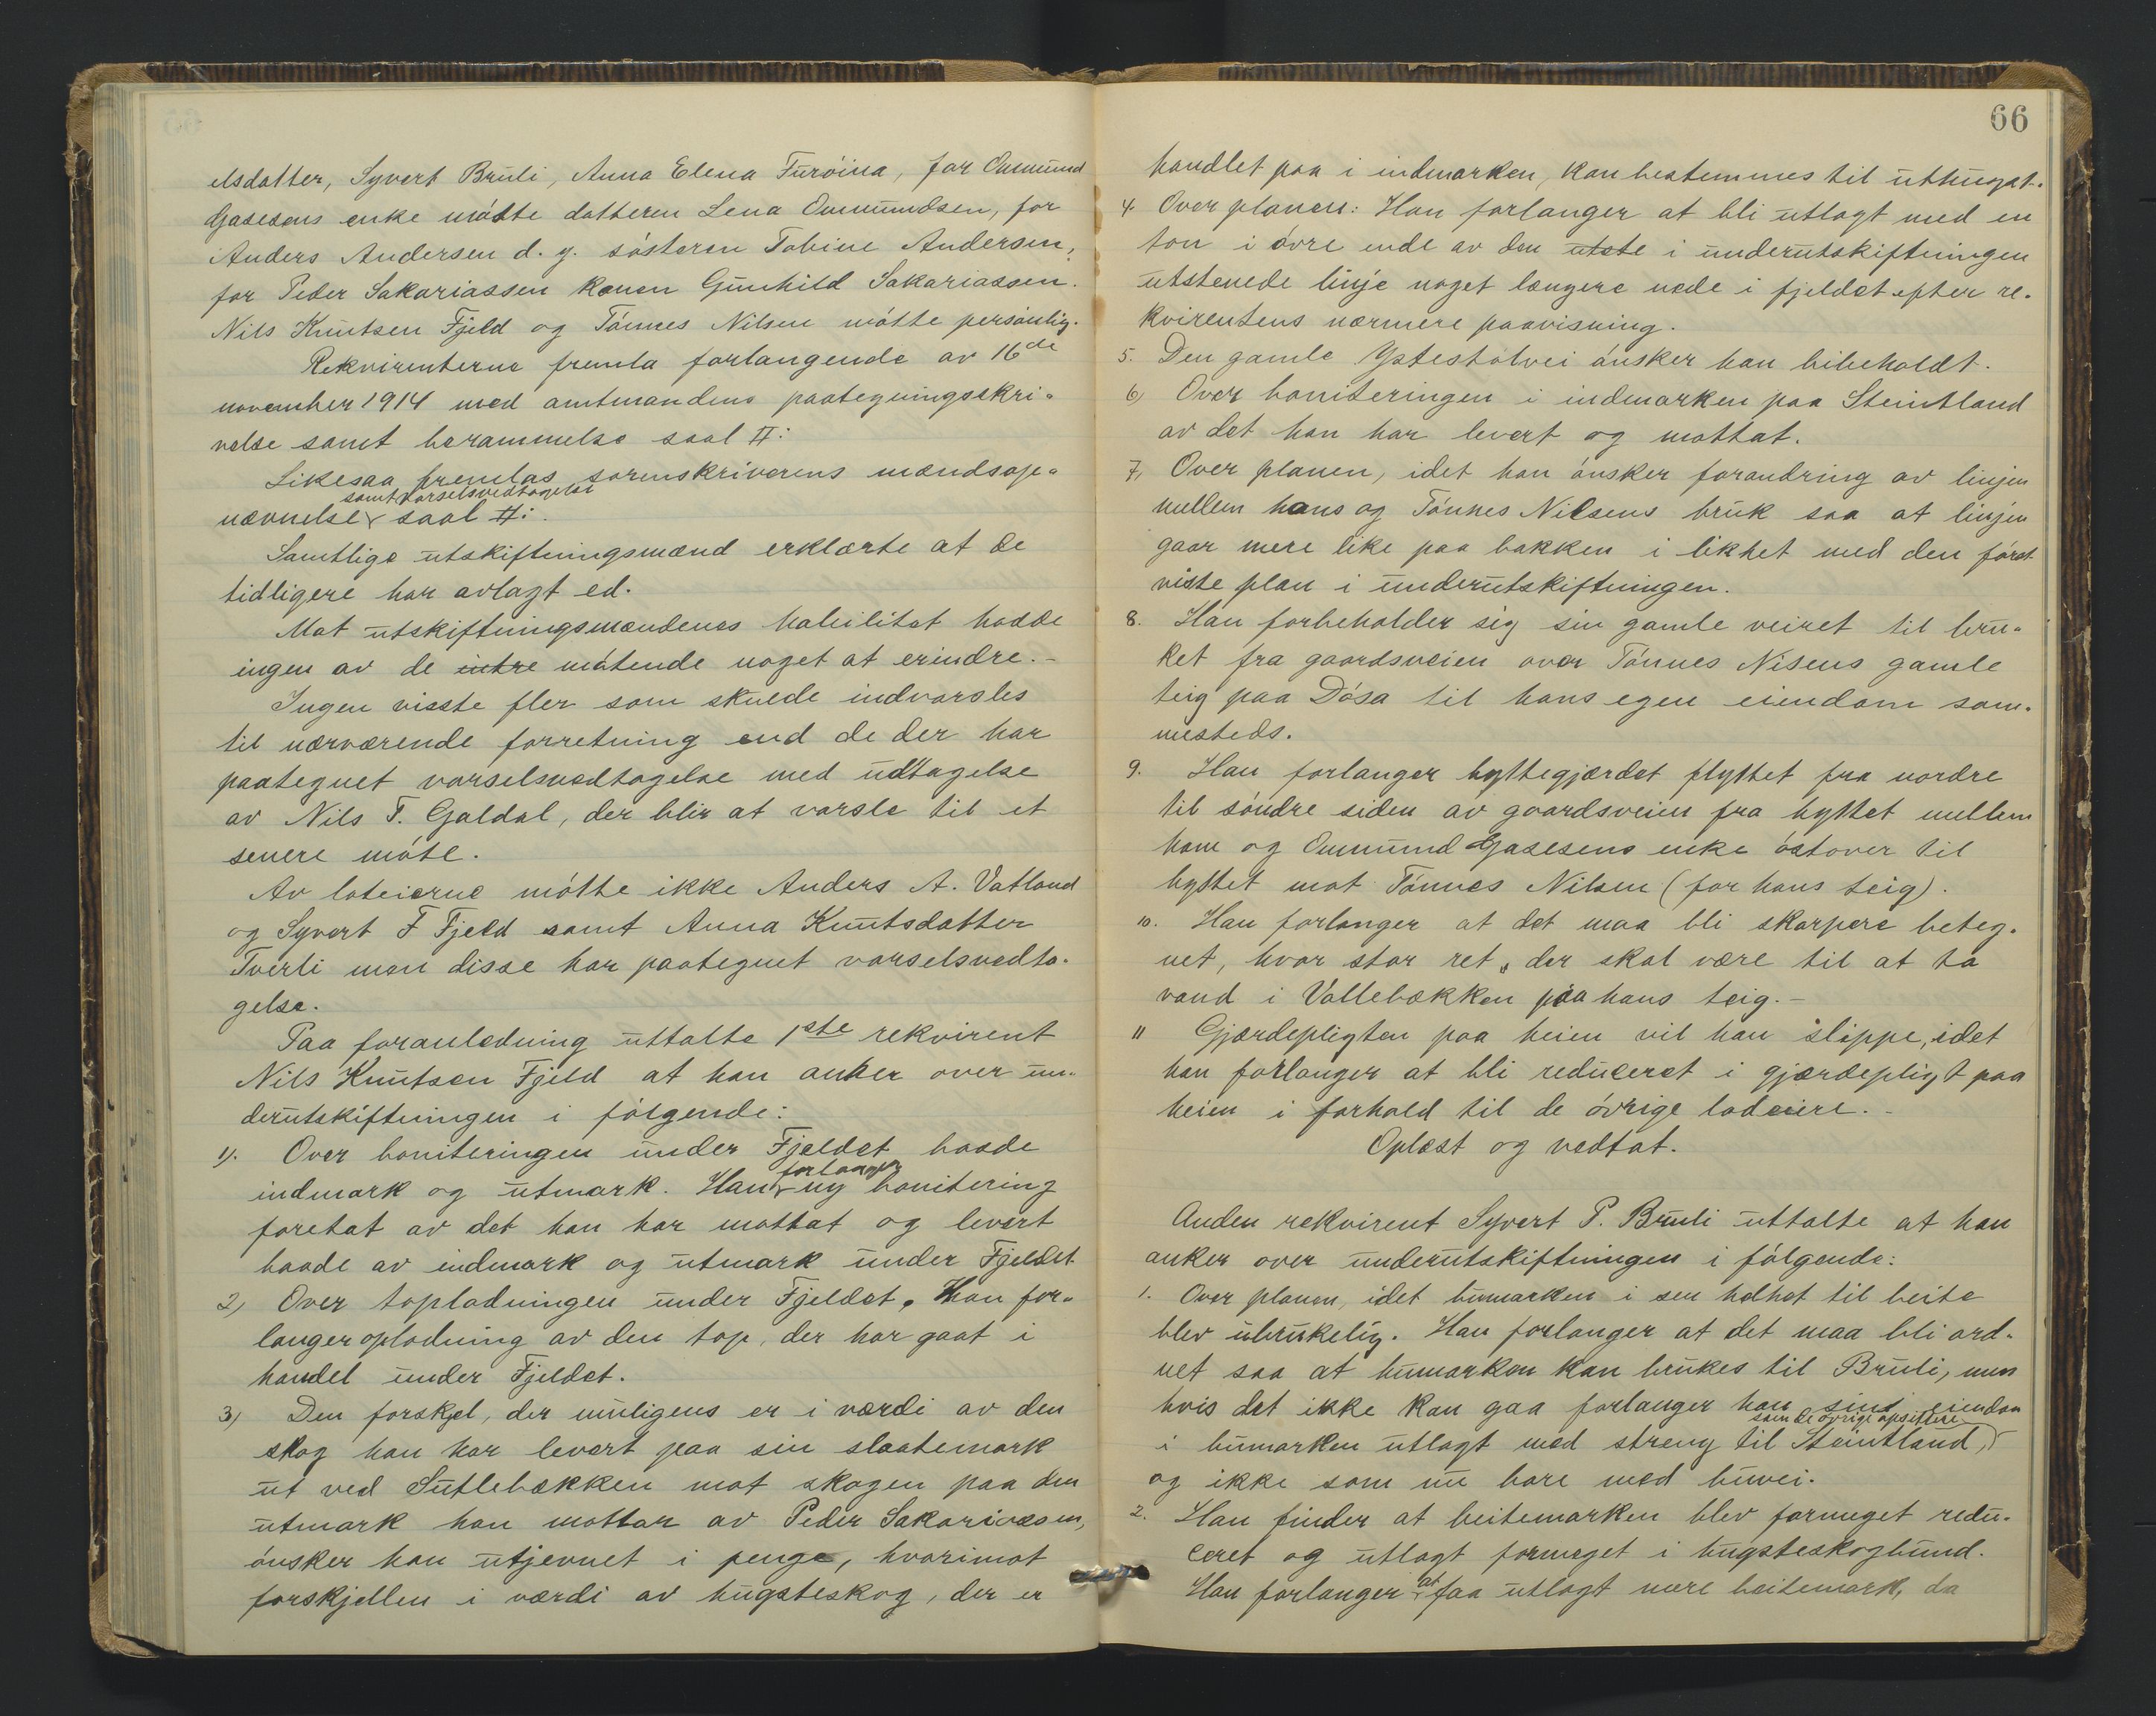 elsdatter, Syvert Bruli, Anna Elena Furöina, for Ommund
Gasesens enke mötte datteren Lena Ommundsen, for
Anders Andersen d. y. sösteren Tobine Andersen,
for Peder Sakariassen konen Gunhild Sakariassen.
Nils Knutsen Fjeld og Tönnes Nilsen mötte personlig.
Rekvirenterne fremla forlangende av 16de
november 1914 med amtmandens paategningsskri-
velse samt berammelse saal #:
Likesaa fremlas sorenskriverens mændsop-
nævnelse samt varselsvedtagelse saal #:
Samtlige utskiftningsmænd erklærte at de
tidligere har avlagt ed.
Mot utskiftningsmændenes habilitet hadde
ingen av de intre mötende noget at erindre.-
Ingen visste fler som skulde indvarsles
til nærværende forretning end de der har
paategnet varselsvedtagelse med udtagelse
av Nils T. Galdal, der blir at varsle til et
senere möte.
Av loteierne mötte ikke Anders A. Vatland
og Syvert F Fjeld samt Anna Knutsdatter
Tverli men disse har paategnet varselsvedta-
gelse.
Paa foranledning uttalte 1ste rekvirent
Nils Knutsen Fjeld at han anker over un-
derutskiftningen i fölgende:
1). Over boniteringen under Fjeldet baade
indmark og utmark. Han forlanger ny bonitering
foretat av det han har mottat og levert
baade av indmark og utmark under Fjeldet.
2) Over toplodningen under Fjeldet. Han for-
langer oplodning av den top, der har gaat i
handel under Fjeldet.
3) Den forskjel, der muligens er i værdi av den
skog han har levert paa sin slaatemark
ut ved Sutlebækken mot skogen paa den
utmark han mottar av Peder Sakariassen,
önsker han utjevnet i penge, hvorimot
forskjellen i værdi av hugsteskog, der er
66
handlet paa i indmarken, kan bestemmes til uthugst.
4. Over planen: Han forlanger at bli utlagt med en
ton i övre ende av den utste i underutskiftningen
utstenede linje noget længere nede i fjeldet efter re-
kvirentens nærmere paavisning.
5. Den gamle Ystestölvei önsker han bibeholdt.
6) Over boniteringen i indmarken paa Steintland
av det han har levert og mottat.
7, Over planen, idet han önsker forandring av linjen
mellem hans og Tönnes Nilsens bruk saa at linjen
gaar mere like paa bakken i likhet med den först
viste plan i underutskiftningen.
8. Han forbeholder sig sin gamle veiret til bru-
ket fra gaardsveien over Tönnes Nisens gamle
teig paa Dösa til hans egen eiendom sam-
mesteds.
9. Han forlanger byttegjærdet flyttet fra nordre
til söndre siden av gaardsveien fra byttet mellem
ham og Ommund Gasesens enke östover til
byttet mot Tönnes Nilsen (for hans teig).
10. Han forlanger at det maa bli skarpere beteg-
net, hvor stor ret, der skal være til at ta
vand i Vallebækken paa hans teig.-
11 Gjærdepligten paa heien vil han slippe, idet
han forlanger at bli reduceret i gjærdepligt paa
heien i forhold til de övrige lodeiere.-
Oplæst og vedtat.
Anden rekvirent Syvert P. Bruli uttalte at han
anker over underutskiftningen i fölgende:
1. Over planen, idet bumarken i sen helhet til beite
blev ubrukelig. Han forlanger at det maa bli ord-
net saa at bumarken kan brukes til Bruli, men
hvis det ikke kan gaa forlanger han sine eiendom
i bumarken utlagt med streng til Steintland, som de övrige opsittere
og ikke som nu bare med buvei.
2. Han finder at beitemarken blev formeget redu-
ceret og utlagt formeget i hugsteskogbund.
Han forlanger at faa utlagt mere beitemark, da